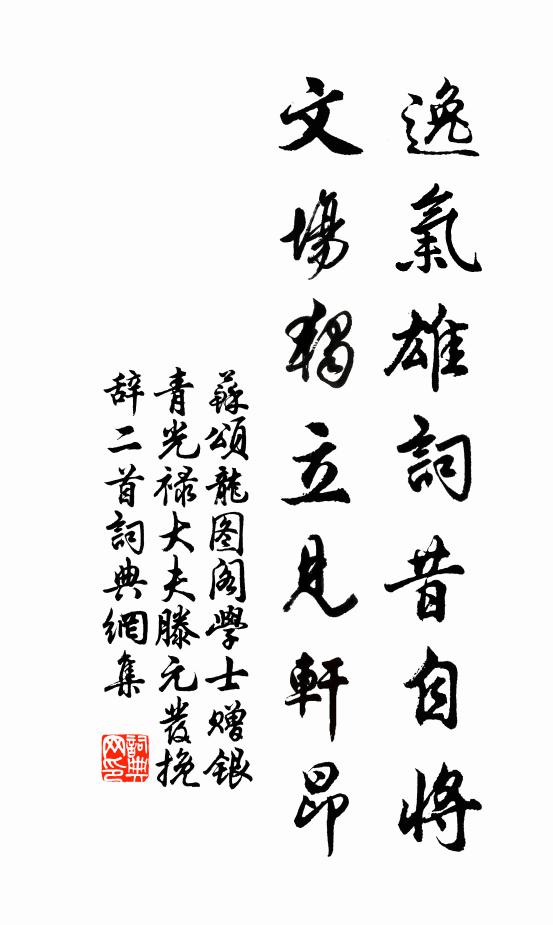 逸氣雄詞昔自將
文場獨立見軒昂
蘇頌龍图阁學士赠银
青光禄大夫滕元發挽
辞二首詞典網集
詞典
网印